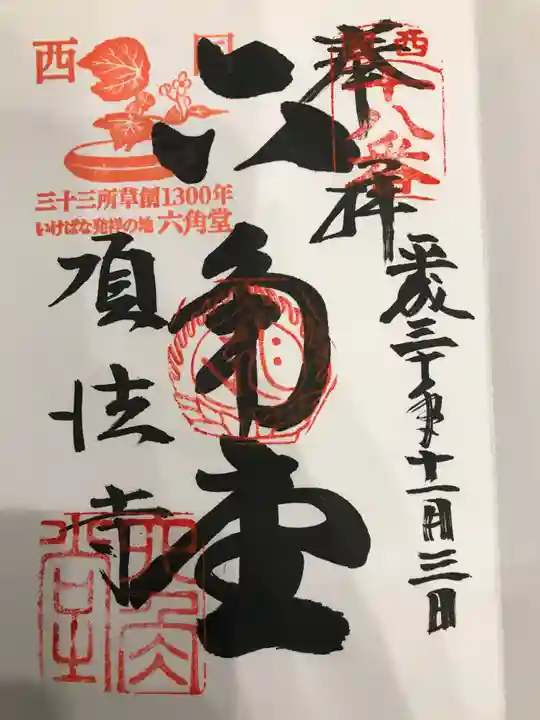 奉拝
西国
十八番
平成三十年十一月三日
六角堂
西国
三十三所草創1300年
いけばな発祥の地 六角堂
頂法寺